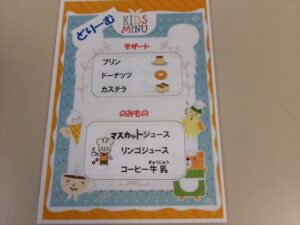 どりーむ
KIDS
MENU
デザート
プリン
ドーナッツ
カステラ
のみもの
マスカットジュース
リンゴジュース
コーヒー牛乳
ぎゅうにゅう